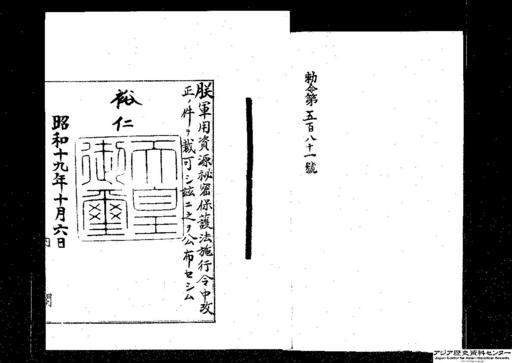 勅令第五百八十一號
朕軍用資源秘密保護法施行令中改
正ノ件ヲ裁可シ玆ニ之ヲ公布セシム
裕仁
天皇
御璽
昭和十九年十月六日
アジア歴史資料センター
Japan Center for Asian Historical Records